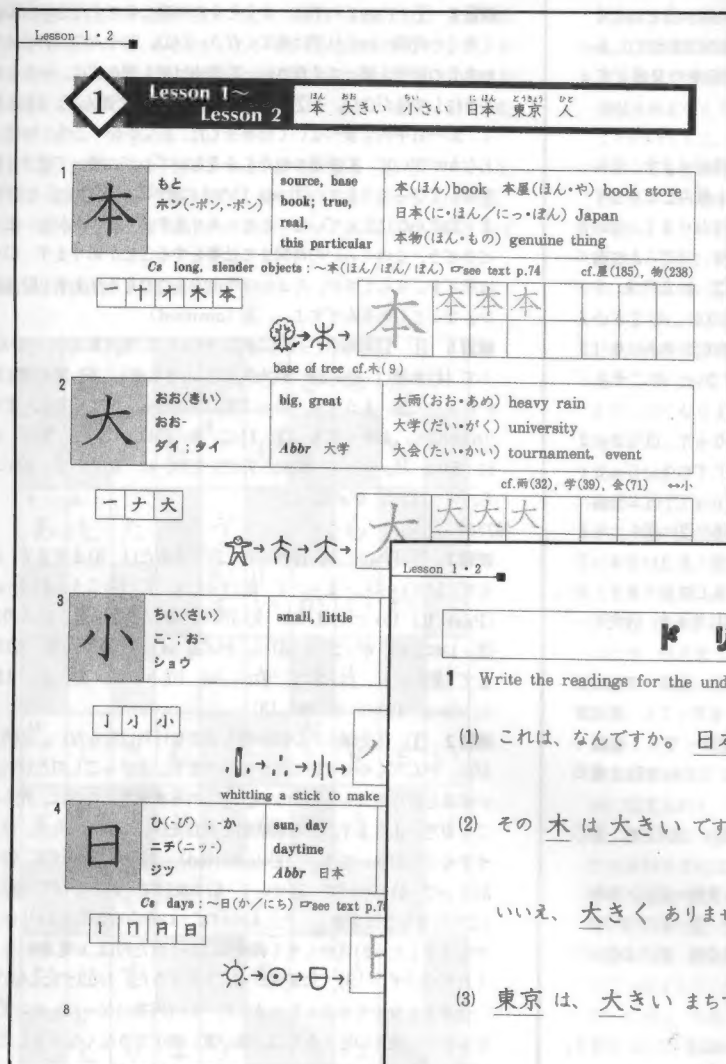 Lesson 1・2
1 Lesson 1～
Lesson 2
本 大きい 小さい 日本 東京 人
ほん おお ちい にほん とうきょう ひと
1
本
もと
ホン(-ポン, -ボン)
source, base
book; true,
real,
this particular
本(ほん)book 本屋(ほん・や) book store
日本(に・ほん／にっ・ぽん) Japan
本物(ほん・もの) genuine thing
Cs long, slender objects : ～本(ほん/ぼん/ぽん) ☞see text p.74
cf.屋(185), 物(238)
一 十 才 木 本
本 本 本 本
base of tree cf.木(9)
2
大
おお〈きい〉
おお-
ダイ ; タイ
big, great
Abbr 大学
大雨(おお・あめ) heavy rain
大学(だい・がく) university
大会(たい・かい) tournament, event
cf.雨(32), 学(39), 会(71) ↔小
一 ナ 大
大 大 大 大
3
小
ちい〈さい〉
こ- ; お-
ショウ
small, little
亅 小
whittling a stick to make
4
日
ひ(-び) ; -か
ニチ(ニッ-)
ジツ
sun, day
daytime
Abbr 日本
Cs days : ～日(か/にち) ☞see text p.7
丨 冂 日 日
8
Lesson 1・2
ド
1 Write the readings for the und
(1) これは、なんですか。 日
(2) その 木 は 大きい です
いいえ、 大きく ありませ
(3) 東京 は、 大きい まち